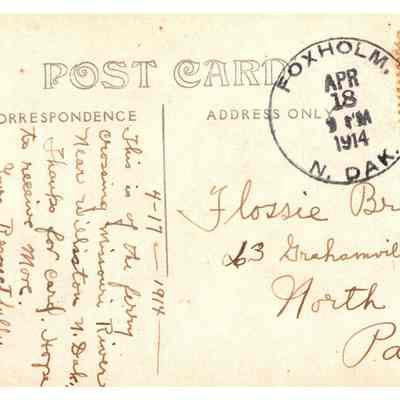 POST CARD
FOXHOLM,
APR
18
9 PM
1914
N. DAK.
CORRESPONDENCE
ADDRESS ONLY
4-17-1914-
This is of the ferry
crossing Missouri River
Near Williston N. Dak.
Thanks for card. Hope
to receive More.
Yours Respectfully
Flossie Br
63 Grahamvil
North
Pa